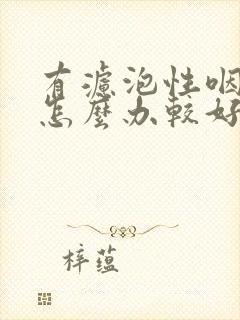 有濾泡性咽
怎麼办較好
梓蕴